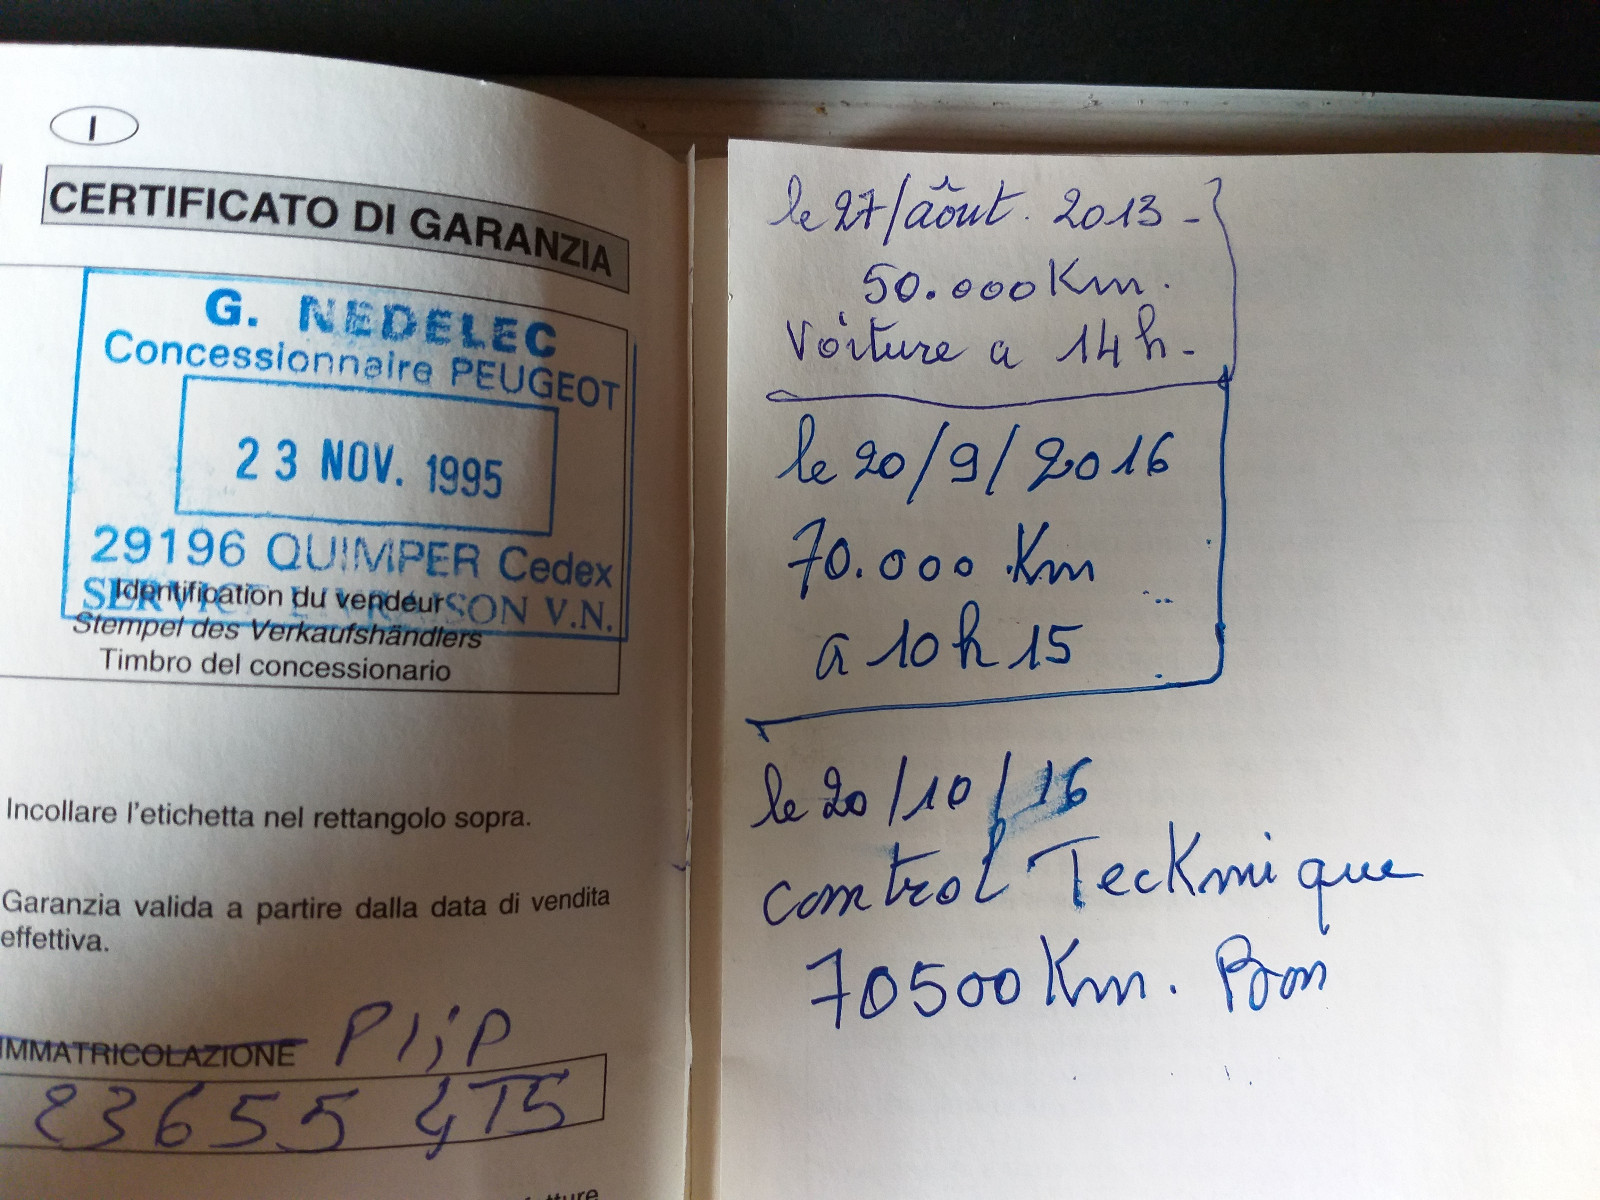 I
CERTIFICATO DI GARANZIA
G. NEDELEC
Concessionnaire PEUGEOT
23 NOV. 1995
29196 QUIMPER Cedex
SERVICE LIVRAISON V.N.
Identification du vendeur
Stempel des Verkaufshändlers
Timbro del concessionario
Incollare l'etichetta nel rettangolo sopra.
Garanzia valida a partire dalla data di vendita
effettiva.
IMMATRICOLAZIONE Plip
23655
le 27/août. 2013 -
50.000 Km.
Voiture a 14h -
le 20/9/2016
70.000 Km
a 10h15
le 20/10/16
control Tecknique
70500 Km. Bon